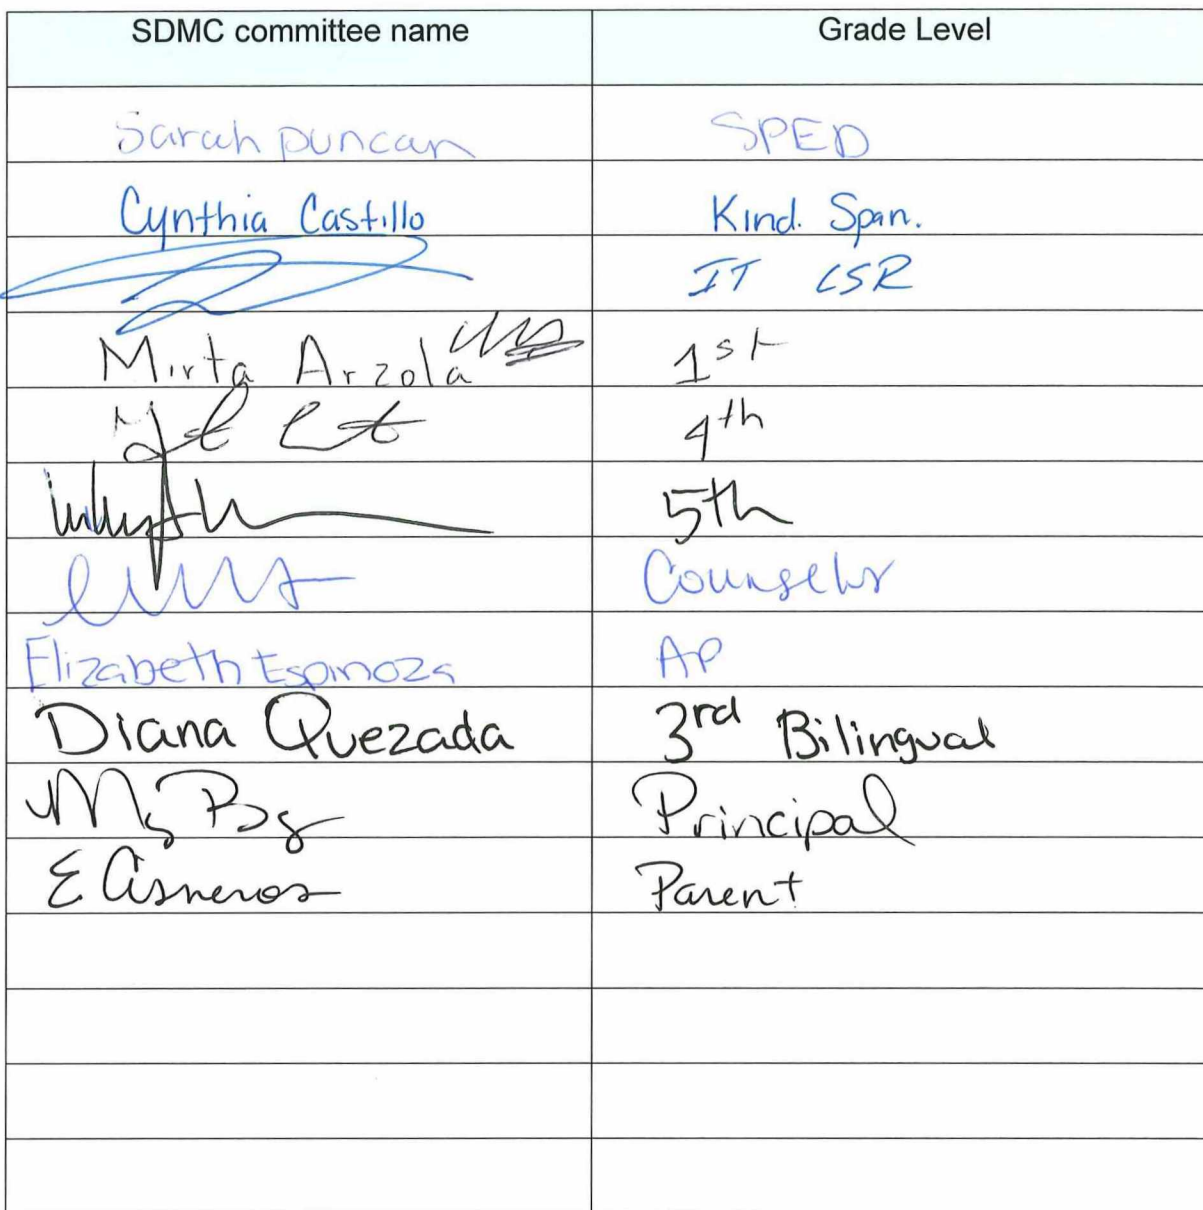 SDMC committee name Grade Level
Sarah Duncan SPED
Cynthia Castillo Kind. Span.
IT CSR
Mirta Arzola 1st
4th
5th
Counselor
Elizabeth Espinoza AP
Diana Quezada 3rd Bilingual
Principal
E Cisneros Parent